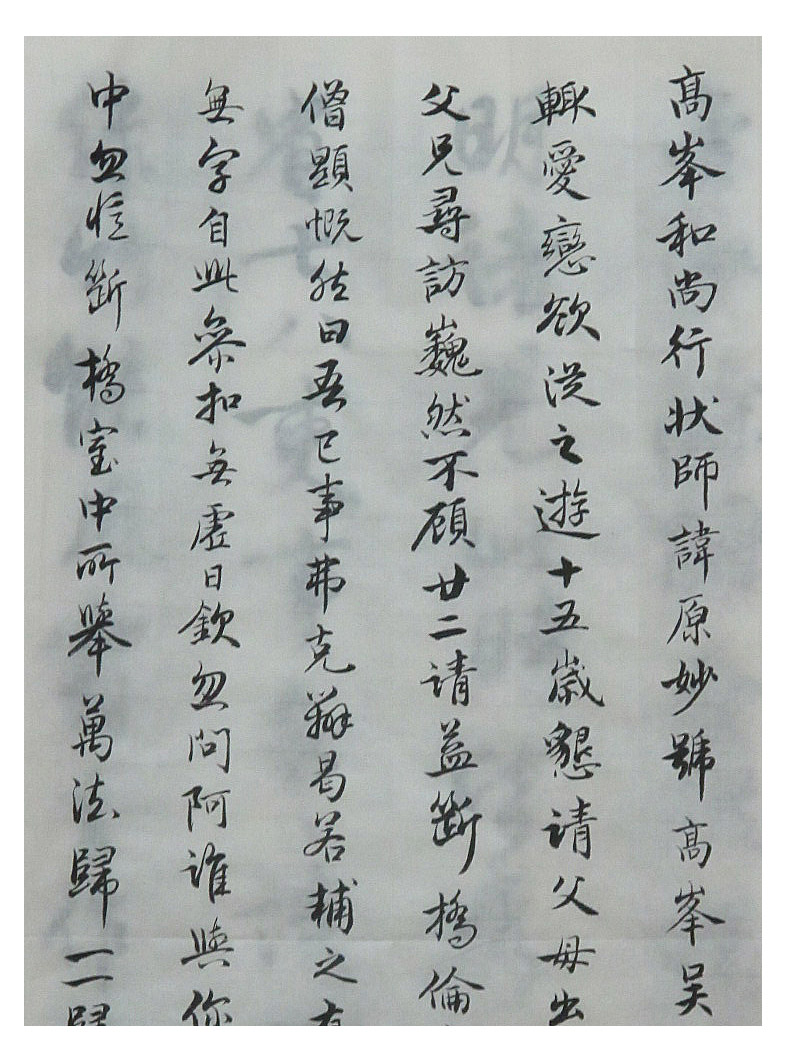 高峯和尚行狀師諱原妙號高峯吴
輙愛戀欲從之遊十五歲懇請父母出
父兄尋訪巍然不顧廿二請益斷橋倫
僧顯慨然曰吾已事弗克辦曷若輔之有
無字自此參扣無虛日欽忽問阿誰與你
中忽憶斷橋室中所舉萬法歸一一歸